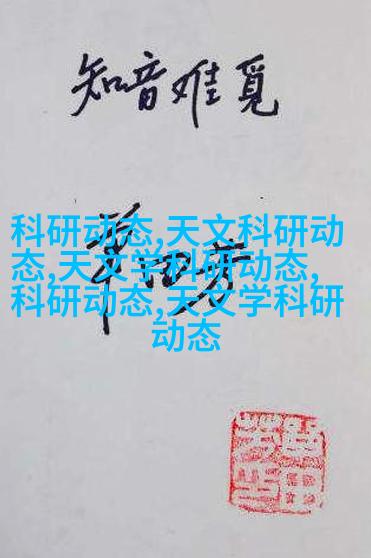 知音难觅
科研动态,天文科研动
态,天文学科研动态,
科研动态,天文学科研
动态